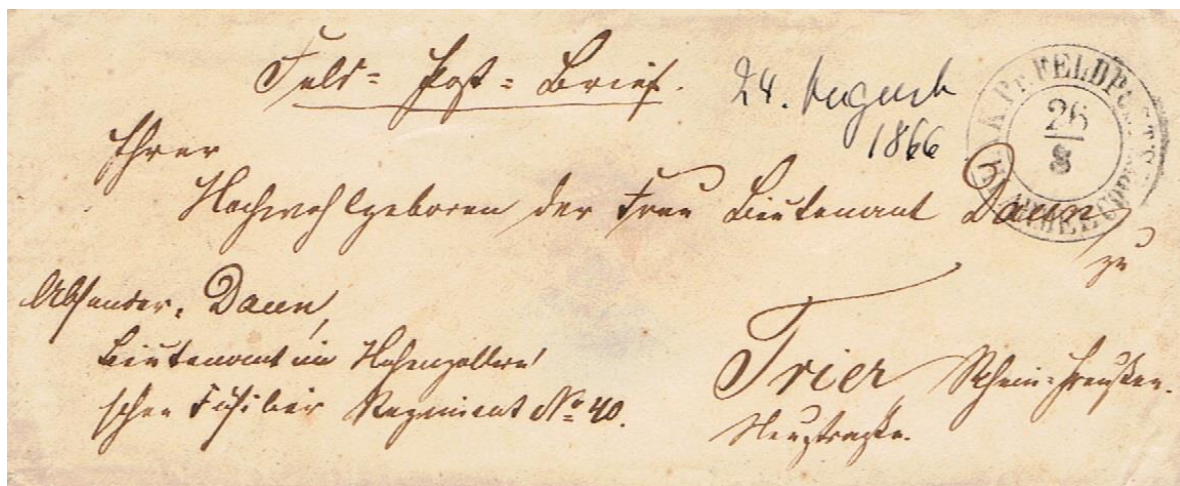 Feld=Post=Brief.
24. August
1866
K. Pr. FELDPOST
26
8
Ihrer
Hochwohlgeboren der Frau Lieutenant Daun
zu
Absender: Daun,
Lieutenant im Hohenzollern'
schen Füsilier Regiment No 40.
Trier, Rhein=Preußen.
Neustraße.